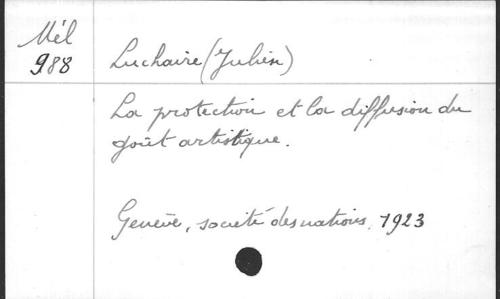 Mél
988
Luchaire (Julien)
La protection et la diffusion du
goût artistique.
Genève, société des nations, 1923